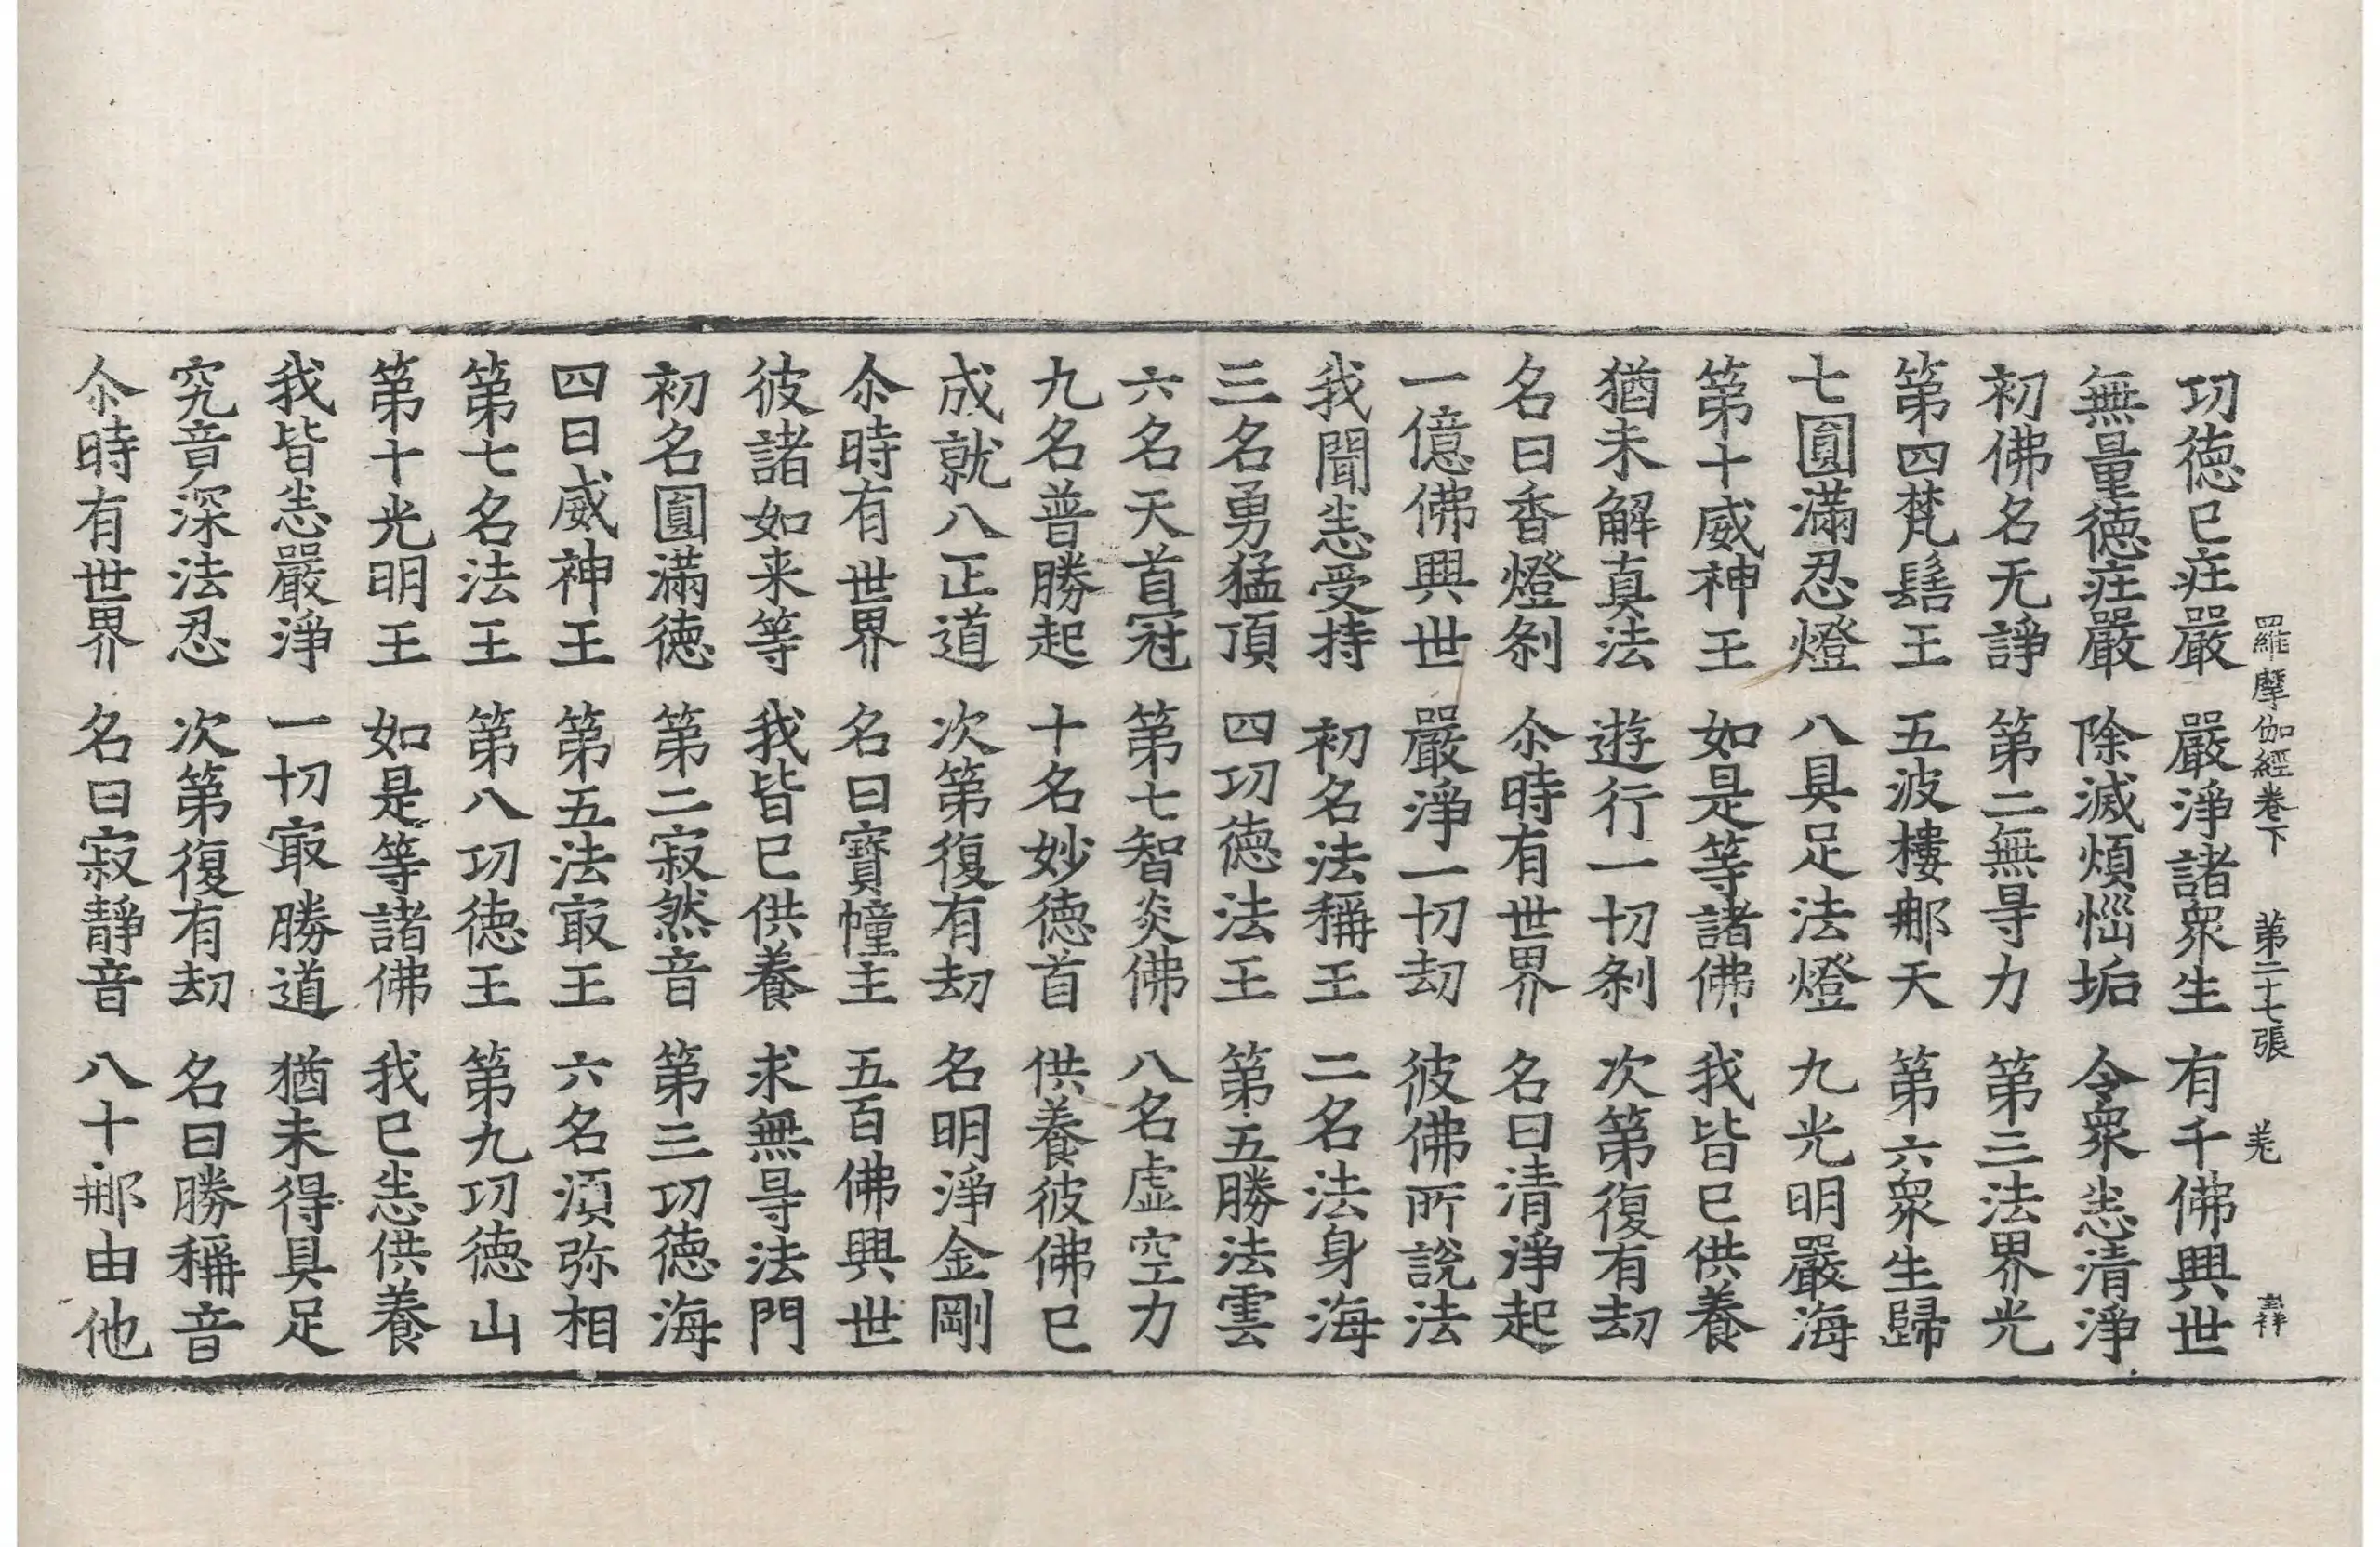 羅摩伽經卷下 第二十七張 羌
功德已莊嚴 嚴淨諸衆生 有千佛興世
無量德莊嚴 除滅煩惱垢 令衆悉清淨
初佛名无諍 第二無㝵力 第三法界光
第四梵髻王 五波樓那天 第六衆生歸
七圓滿忍燈 八具足法燈 九光明嚴海
第十威神王 如是等諸佛 我皆已供養
猶未解真法 遊行一切刹 次第復有劫
名曰香燈刹 尒時有世界 名曰清淨起
一億佛興世 嚴淨一切劫 彼佛所說法
我聞悉受持 初名法稱王 二名法身海
三名勇猛頂 四功德法王 第五勝法雲
六名天首冠 第七智炎佛 八名虛空力
九名普勝起 十名妙德首 供養彼佛已
成就八正道 次第復有劫 名明淨金剛
尒時有世界 名曰寶幢主 五百佛興世
彼諸如来等 我皆已供養 求無㝵法門
初名圓滿德 第二寂然音 第三功德海
四曰威神王 第五法㝡王 六名須弥相
第七名法王 第八功德王 第九功德山
第十光明王 如是等諸佛 我已悉供養
我皆悉嚴淨 一切㝡勝道 猶未得具足
究竟深法忍 次第復有劫 名曰勝稱音
尒時有世界 名曰寂靜音 八十那由他